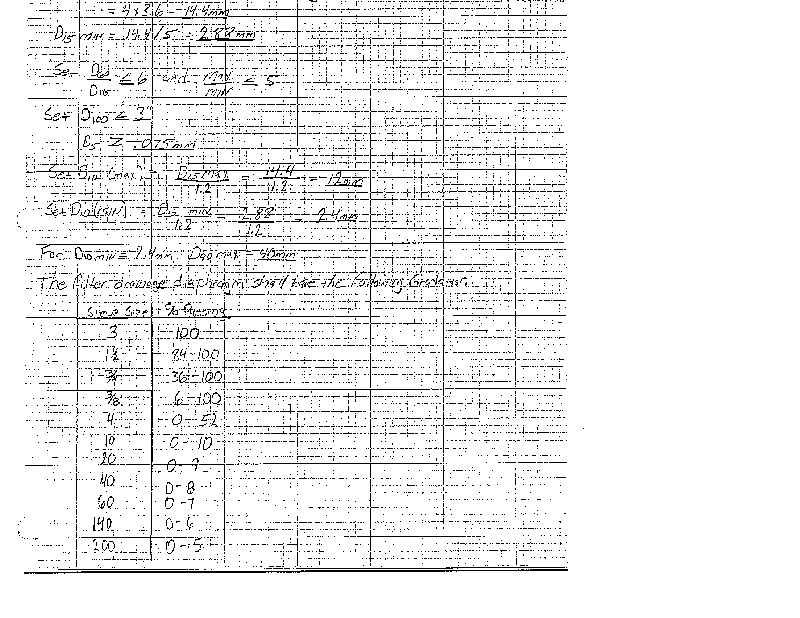 = 4 x 3.6 = 14.4 mm
D15 min = 14.4/5 = 2.88 mm
Set D60/D10 ≤ 6 and max/min ≤ 5
Set D100 ≤ 3"
D5 ≥ .075 mm
Set D10 (max) = D15 max/1.2 = 14.4/1.2 = 12 mm
Set D10 (min) = D15 min/1.2 = 2.88/1.2 = 2.4 mm
For D10 min = 2.4 mm, D90 max = 40 mm
The filter drainage diaphragm shall have the following Gradation.
Sieve Size % Passing
3 100
1½ 84-100
¾ 36-100
⅜ 6-100
4 0-52
10 0-10
20 0-9
40 0-8
60 0-7
140 0-6
200 0-5